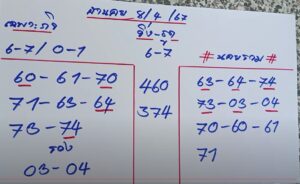 ฮานอย 8/4/67
เฉพาะกิจ
6-7/0-1
60-61-70
71-63-64
73-74
รอง
03-04
วิ่ง-รูด
6-7
460
374
# นครรวม #
63-64-74
73-03-04
70-60-61
71